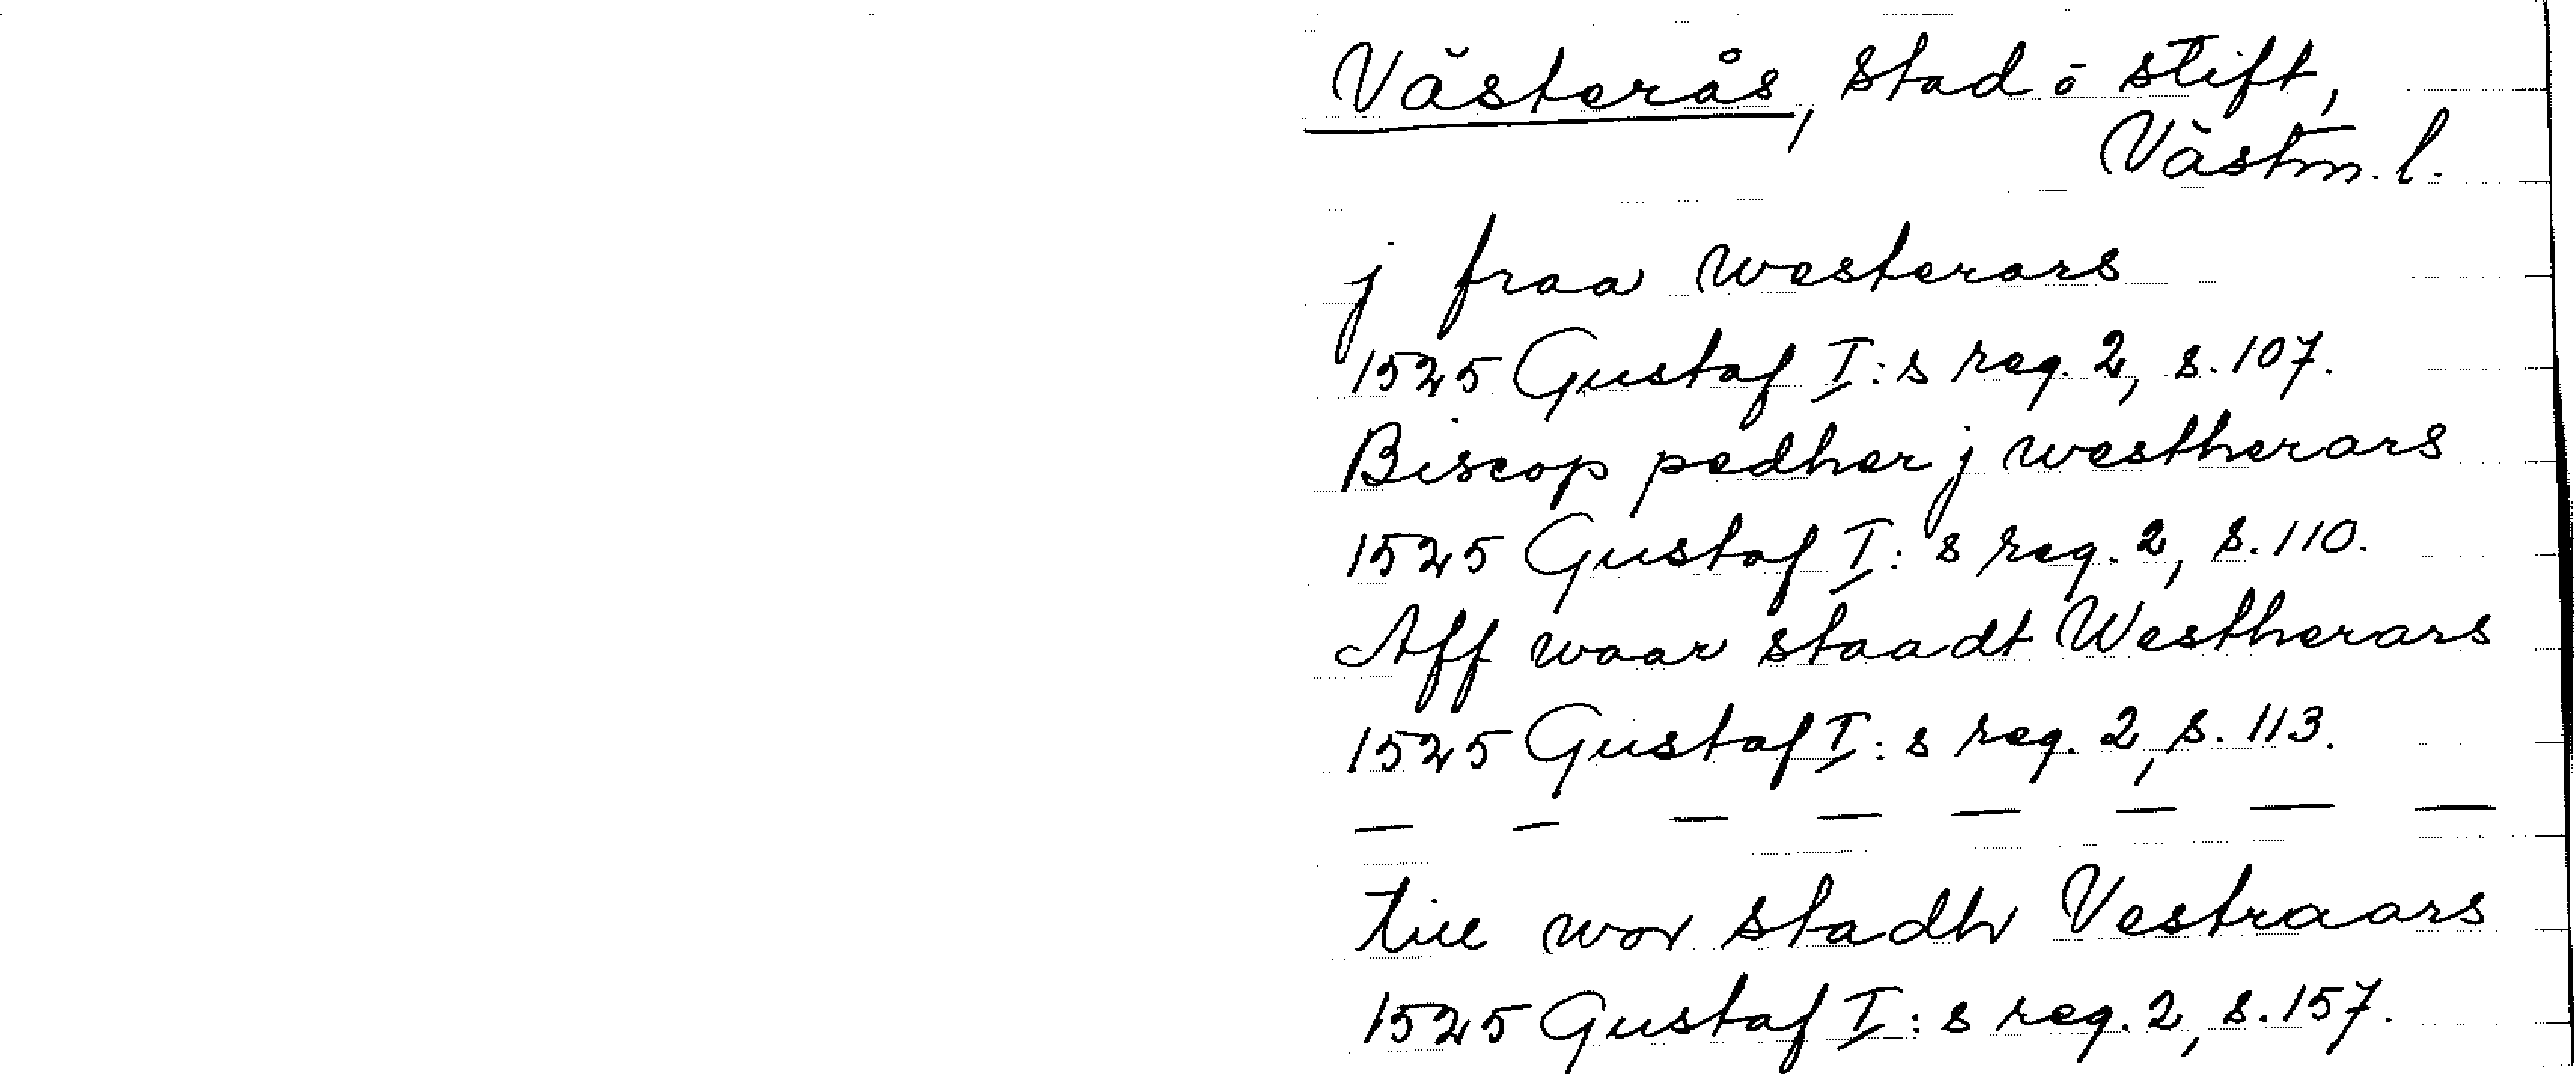 Västerås, stad o stift,
Västm. l.
j fraa westerars
1525 Gustaf I:s reg. 2, s. 107.
Biscop pedher j westherars
1525 Gustaf I:s reg. 2, s. 110.
Aff waar staadt Westherars
1525 Gustaf I:s reg. 2, s. 113.
— — — — — — — —
till wor stadh Vestraars
1525 Gustaf I:s reg. 2, s. 157.